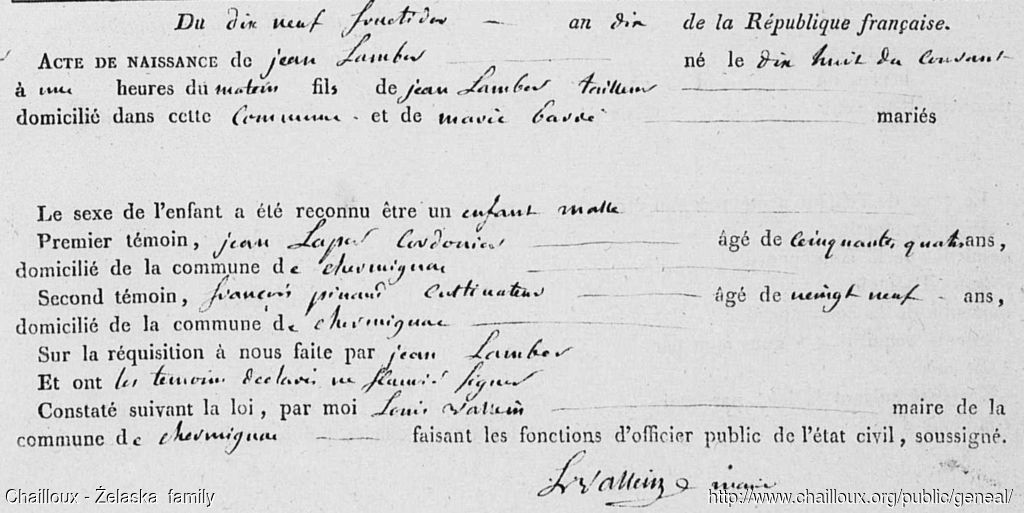 Du dix neuf fructidor — an dix de la République française.
ACTE DE NAISSANCE de jean Lamber né le dix huit du courant
à une heures du matin fils de jean Lamber tailleur
domicilié dans cette Commune et de marie barré mariés
Le sexe de l'enfant a été reconnu être un enfant malle
Premier témoin, jean Cordonier âgé de Cinquante quatre ans,
domicilié de la commune de chermignac
Second témoin, françois pinaud Cultivateur âgé de veingt neuf ans,
domicilié de la commune de chermignac
Sur la réquisition à nous faite par jean Lamber
Et ont les temoins declaré ne signer
Constaté suivant la loi, par moi Louis vallein maire de la
commune de chermignac faisant les fonctions d'officier public de l'état civil, soussigné.
Ls Vallein maire
Chailloux - Żelaska family
http://www.chailloux.org/public/geneal/